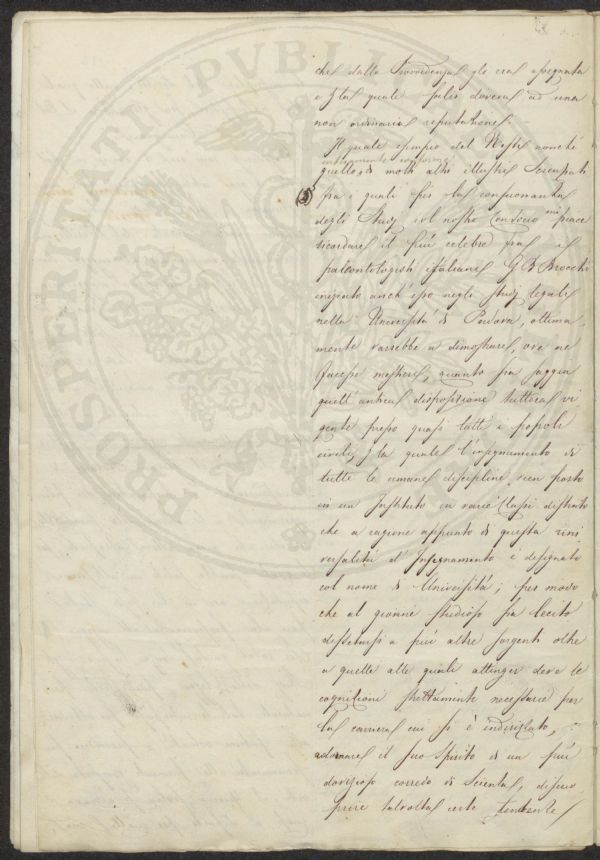 che dalla Provvidenza gli era assegnata
e per la quale salir doveva ad una
non ordinaria reputazione.
Il quale esempio del Nostro nonchè
interamente conforme
quello di molti altri illustri Scienziati
fra i quali per la consonanza
degli Studj col nostro Consocio mi piace
ricordare il più celebre fra i
paleontologisti italiani G B Brocchi
iniziato anch'esso negli studj legali
nella Università di Padova, ottima
mente varrebbe a dimostrare, ove ne
facesse mestieri, quanto sia saggia
quell'antica disposizione tuttora vi
gente presso quasi tutti i popoli
civili, per la quale l'insegnamento di
tutte le umane discipline vien posto
in un Instituto in varie Classi distinto
che a cagione appunto di questa uni
versalità d'Insegnamento è designato
col nome di Università; per modo
che al giovane studioso sia lecito
dissetarsi a più altre sorgenti oltre
a quelle alle quali attinger deve le
cognizioni strettamente necessarie per
la carriera cui si è indirizzato,
adornare il suo Spirito di un più
dovizioso corredo di Scienza, discuo
prire talvolta certe tendenze
PROSPERITATI PVBLI